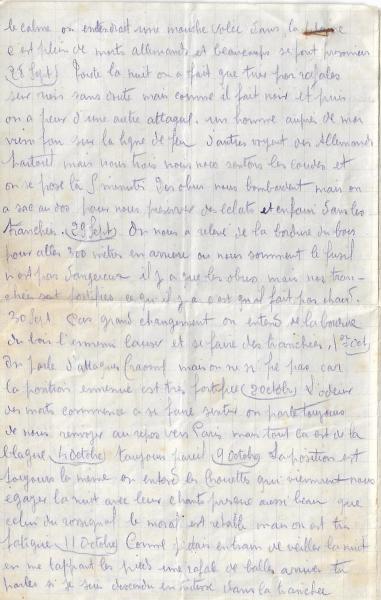 le calme on entendrait une mouche volée dans la plaine
c'est plein de morts allemands et beaucoups se font prisonier
28 Sept) Toute la nuit on a fait que tirer par rafales
sur rien sans doute mais comme il fait noir et puis
on a peur d'une autre attaque. un homme auprès de moi
vien fou sur la ligne de feu d'autres voyent des Allemands
partout mais nous trois nous nous sentons les coudes et
on se pose là 5 minutes des obus nous bombardent mais on
a sac au dos pour nous préserver des éclats et enfoui dans les
tranchées. (29 Sept. On nous a relevé de la bordure du bois
pour aller 300 mètres en arrière où nous sommes le fusil
n'est pas dangereux il y a que les obus mais nos tran-
chées sont fortifiées ce qu'il y a c'est qu'il fait pas chaud.
30 Sept Pas grand changement on entend de la bordure
du bois l'ennemi causer et se faire des tranchées, 1er Oct
On parle d'attaquer Craonne mais on ne si fie pas car
la position ennemie est très fortifiée (2 Octobre) L'odeur
des morts commence a se faire sentir on parle toujours
de nous renvoyer au repos vers Paris mais tout ça est de la
blague (4 Octobre) toujours pareil (9 Octobre) La position est
toujours la même on entend les chouettes qui viennent nous
égayer la nuit avec leur chant presque aussi beau que
celui du rossignol le moral est mais on est très
fatigué (11 Octobre) Comme j'étais entrain de veiller la nuit
en me tappant les pieds une rafale de balles arrive tu
parles si je suis descendu en vitesse dans la tranchée